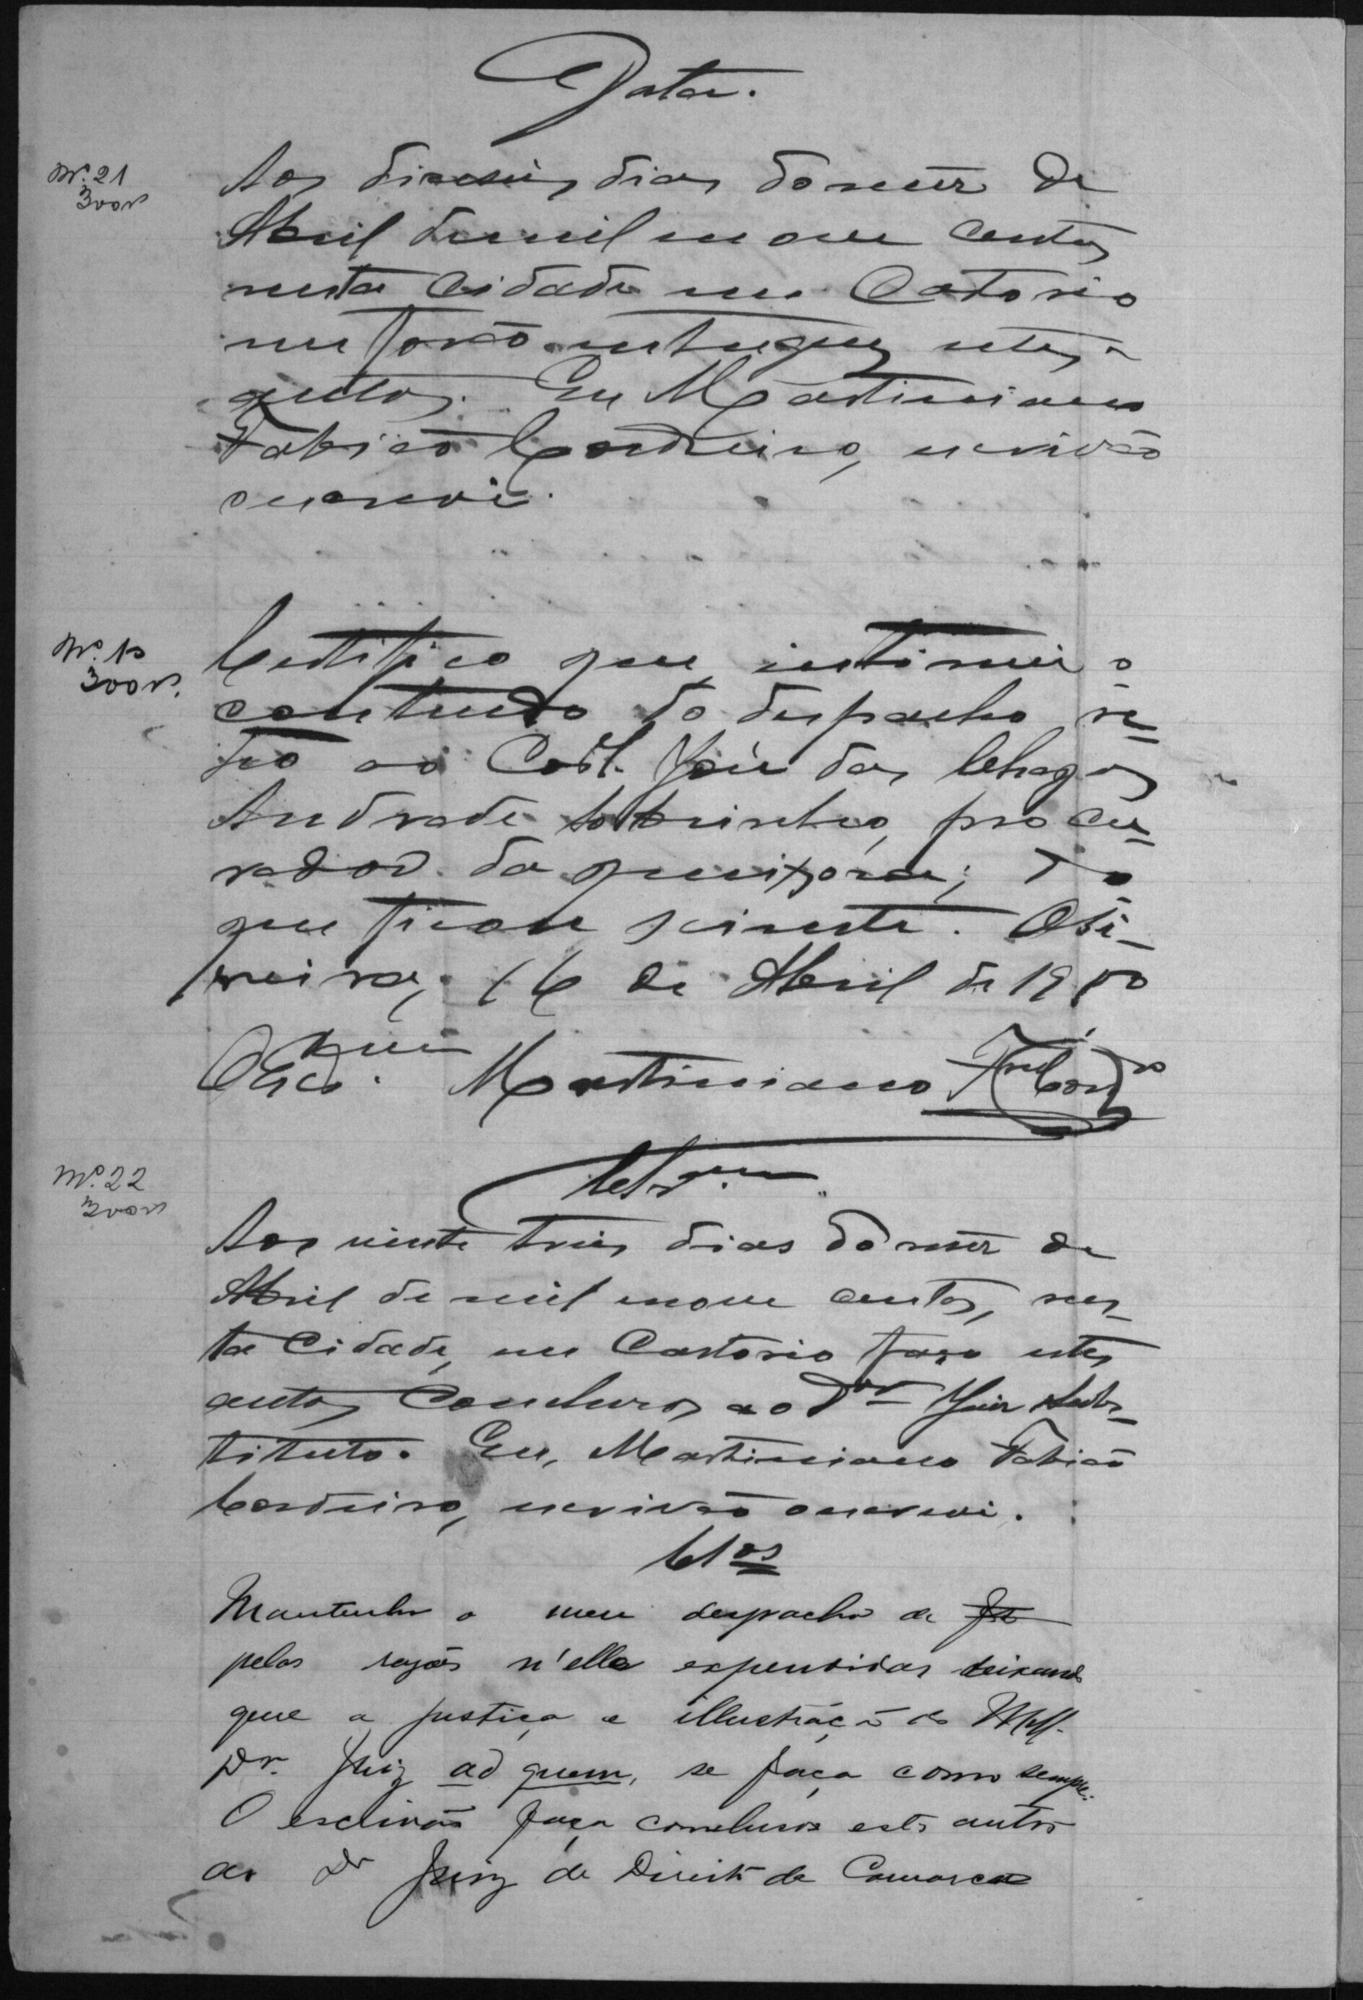 Data.
Nº. 21
300rs
Aos dieseseis dias do mez de
Abril de mil nove centos
nesta Cidade em Cartorio
me forão entregues estes
autos. Eu Martiniano
Fabião Cordeiro, escrivão
o escrevi.
Nº. 10
300rs.
Certifico que intimei o
contendo do despacho re-
tro ao José das Chagas
Andrade Sobrinho, procu-
rador da queixosa; do
que ficou sciente. Oli-
veira, 16 de Abril de 1900
O Escam Martiniano Fam Cordro
Nº. 22
300rs
Clsam.
Aos vinte tres dias do mez de
Abril de mil nove centos, nes-
ta Cidade, em Cartorio faço estes
autos Concluzos ao Dor Juiz Subs-
tituto. Eu, Martiniano Fabião
Cordeiro, escrivão o escrevi.
Clos
Mantenho o meu despacho de
pelas razões n'elle expendidas deixando
que a justiça e illustração do
Dr. Juiz ad quem, se faça como sempre.
O escrivão faça conclusos estes autos
ao Dr Juiz de Direito da Comarca